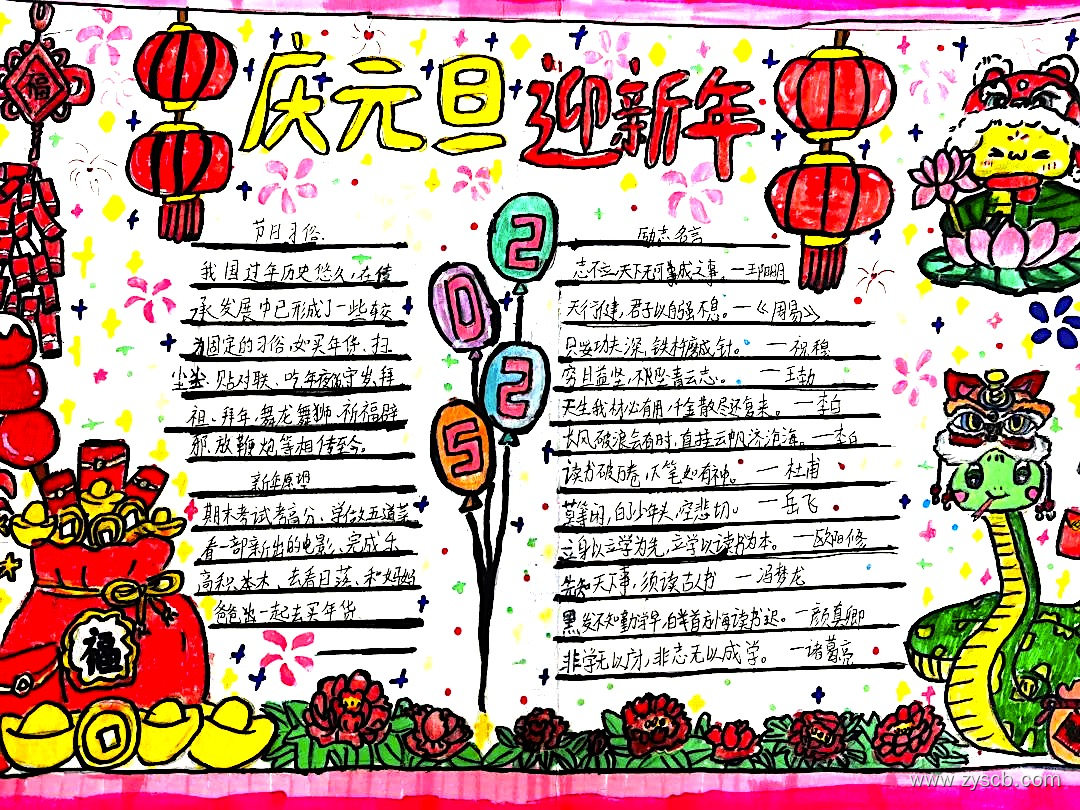 庆元旦 迎新年
福
节日习俗
我国过年历史悠久,在传
承发展中已形成了一些较
为固定的习俗,如买年货、扫
尘、贴对联、吃年夜饭、守岁、拜
祖、拜年、舞龙舞狮、祈福辟
邪、放鞭炮等相传至今。
新年愿望
期末考试考高分、学做五道菜
看一部新出的电影、完成乐
高积木、去看日落、和妈妈
爸爸一起去买年货
2025
励志名言
志不立,天下无可成之事。一王阳明
天行健,君子以自强不息。一《周易》
只要功夫深,铁杵磨成针。一祝穆
穷且益坚,不坠青云志。一王勃
天生我材必有用,千金散尽还复来。一李白
长风破浪会有时,直挂云帆济沧海。一李白
读书破万卷,下笔如有神。一杜甫
莫等闲,白了少年头,空悲切。一岳飞
立身以立学为先,立学以读书为本。一欧阳修
先知天下事,须读古人书 一冯梦龙
黑发不知勤学早,白首方悔读书迟。一颜真卿
非学无以广才,非志无以成学。一诸葛亮
福
www.zyscb.com